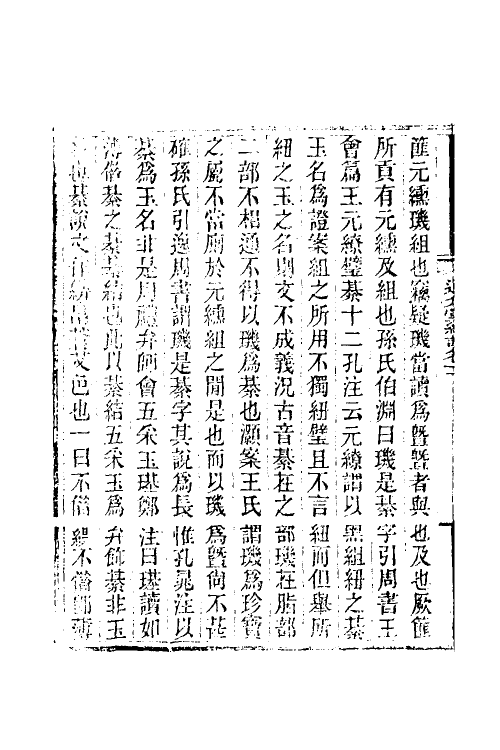 篚元纁璣組也竊疑璣當讀爲曁曁者與也及也厥篚
所貢有元纁及組也孫氏伯淵曰璣是綦字引周書王
會篇王元繚璧綦十二孔注云元繚謂以黑組紐之綦
玉名爲證案組之所用不獨紐璧且不言紐而但舉所
紐之玉之名則文不成義況古音綦在之部璣在脂部
二部不相通不得以璣爲綦也灝案王氏謂璣爲珍寶
之屬不當廁於元纁組之閒是也而以璣爲曁尙不甚
確孫氏引逸周書謂璣是綦字其說爲長惟孔晁注以
綦爲玉名非是周禮弁師會五采玉璂鄭注曰璂讀如
薄借綦之綦綦結也此以綦結五采玉爲弁飾綦非玉
也綦說文作綥帛蒼艾色也一曰不借綥不借卽薄